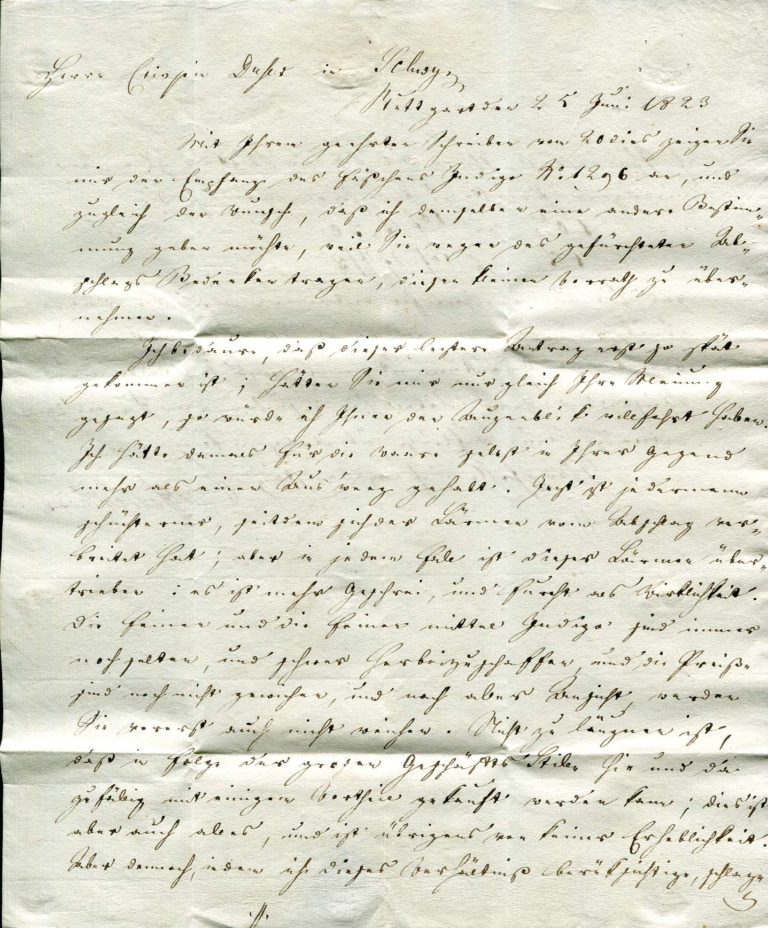 Herrn Crispin Duhs in
Stuttgart den 25 Juni 1823
Mit Ihrem geehrten Schreiben vom 20 dies zeigen Sie
mir den Empfang des Fäßchens Indigo No. 1296 an, und
zugleich den Wunsch, daß ich demselben eine andere Bestim-
mung geben möchte, weil Sie wegen des gefürchteten Ab-
schlags Bedenken tragen, diesen kleinen Vorrath zu über-
nehmen.
Ich bedaure, daß dieser letztere Antrag erst so spät
gekommen ist; hätten Sie mir nur gleich Ihre Meinung
gesagt, so würde ich Ihnen den Augenblick willfahrt haben.
Ich hätte damals für die Waare selbst in Ihrer Gegend
mehr als einen Ausweeg gehabt. Jezt ist jedermann
schüchterner, seitdem sich der Lärmen vom Abschlag ver-
breitet hat; aber in jedem Fall ist dieser Lärmen über-
trieben: es ist mehr Geschrei und Furcht als Wirklichkeit.
Die feinen und die feinen mittel Indigo sind immer
noch selten, und schwer herbeizuschaffen, und die Preiße
sind noch nicht gewichen, und nach aller Ansicht, werden
Sie vorerst auch nicht weichen. Nicht zu läugnen ist,
daß in Folge der großen Geschäfts Stille hie und da
zufällig mit einigem Vortheil gekauft werden kann; dies ist
aber auch alles, und ist übrigens von keiner Erheblichkeit.
Aber dennoch, indem ich dieses Verhältniß berüksichtige, schlage